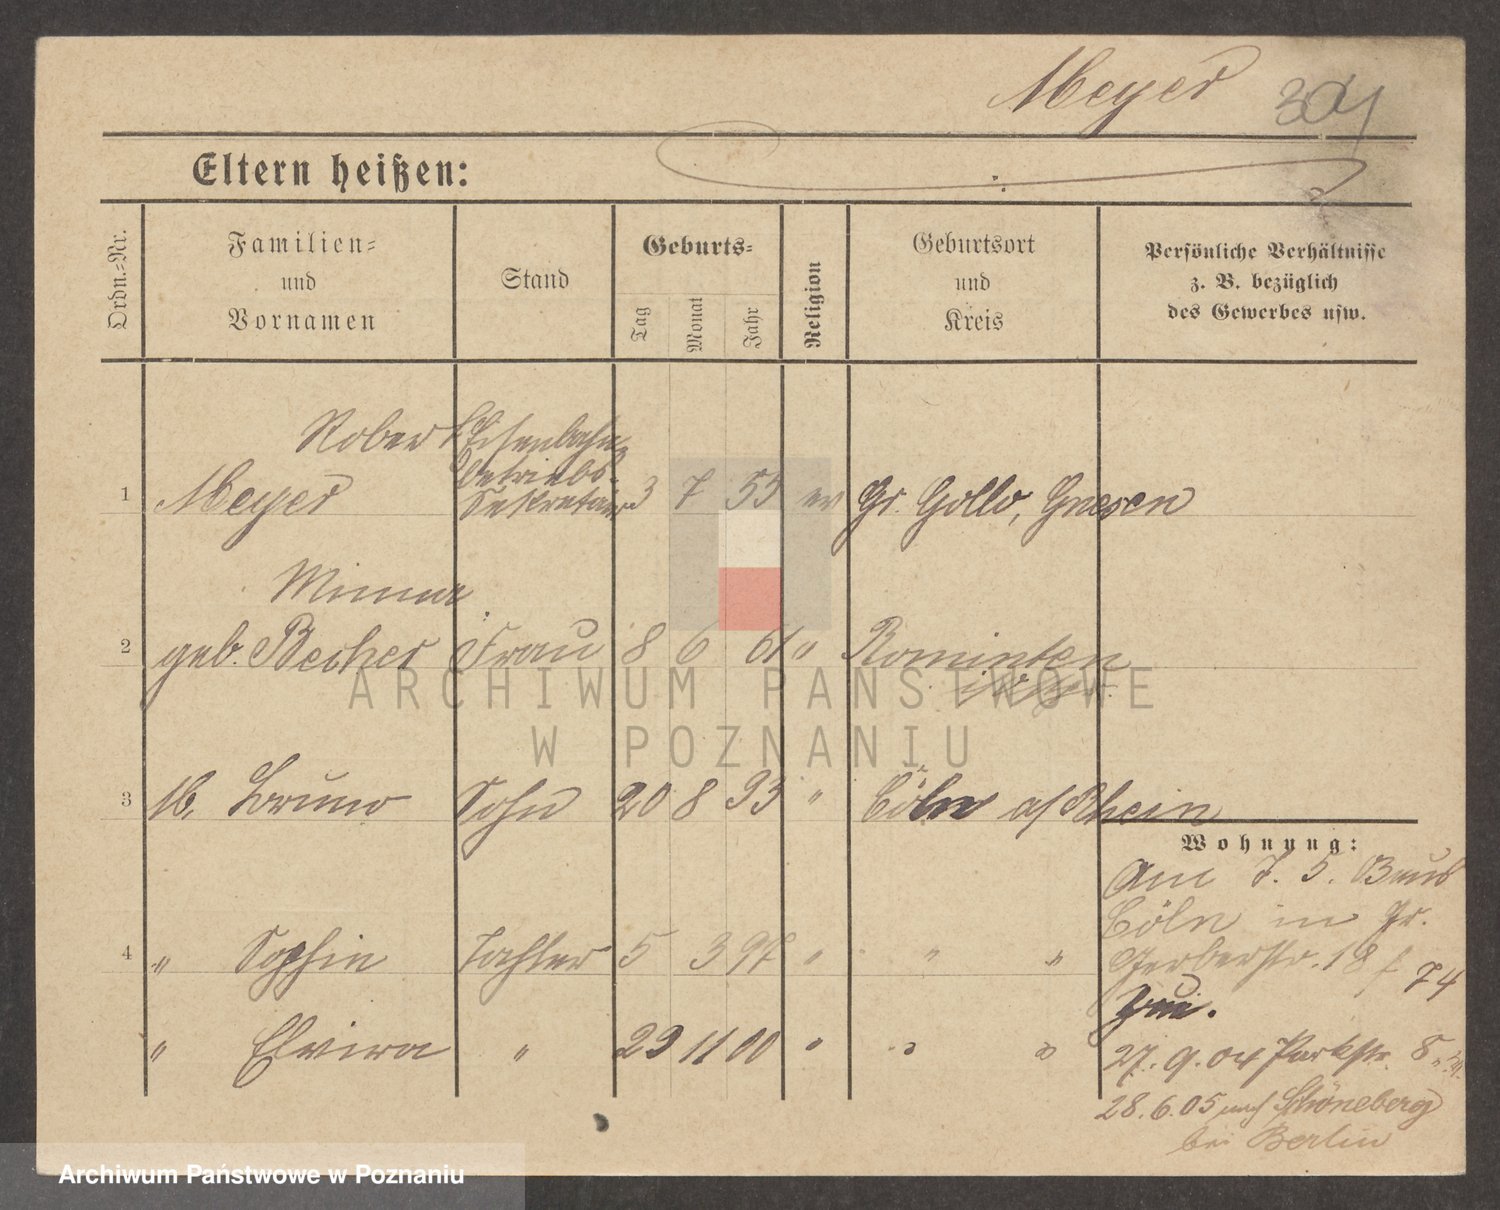 Meyer 304
Eltern heißen:
Ordn.-Nr. Familien- und Vornamen Stand Geburts- Tag Monat Jahr Religion Geburtsort und Kreis Persönliche Verhältnisse z. B. bezüglich des Gewerbes usw.
Robert Eisenbahn-
betriebs-
1 Meyer Sekretair 3 7 55 ev Gr. Gollo, Gnesen
Minna
2 geb. Becher Frau 8 6 61 " Rominten
3 M. Bruno Sohn 20 8 93 " Cöln a/Rhein
Wohnung:
Am 7. 5.
Cöln in Gr.
4 " Sophie Tochter 5 3 97 " " "
Gerberstr. 18 74
" Elvira " 29 11 00 " " "
27. 9. 04 Parkstr. 8
28. 6. 05 nach Schöneberg
bei Berlin
ARCHIWUM PAŃSTWOWE
W POZNANIU
Archiwum Państwowe w Poznaniu